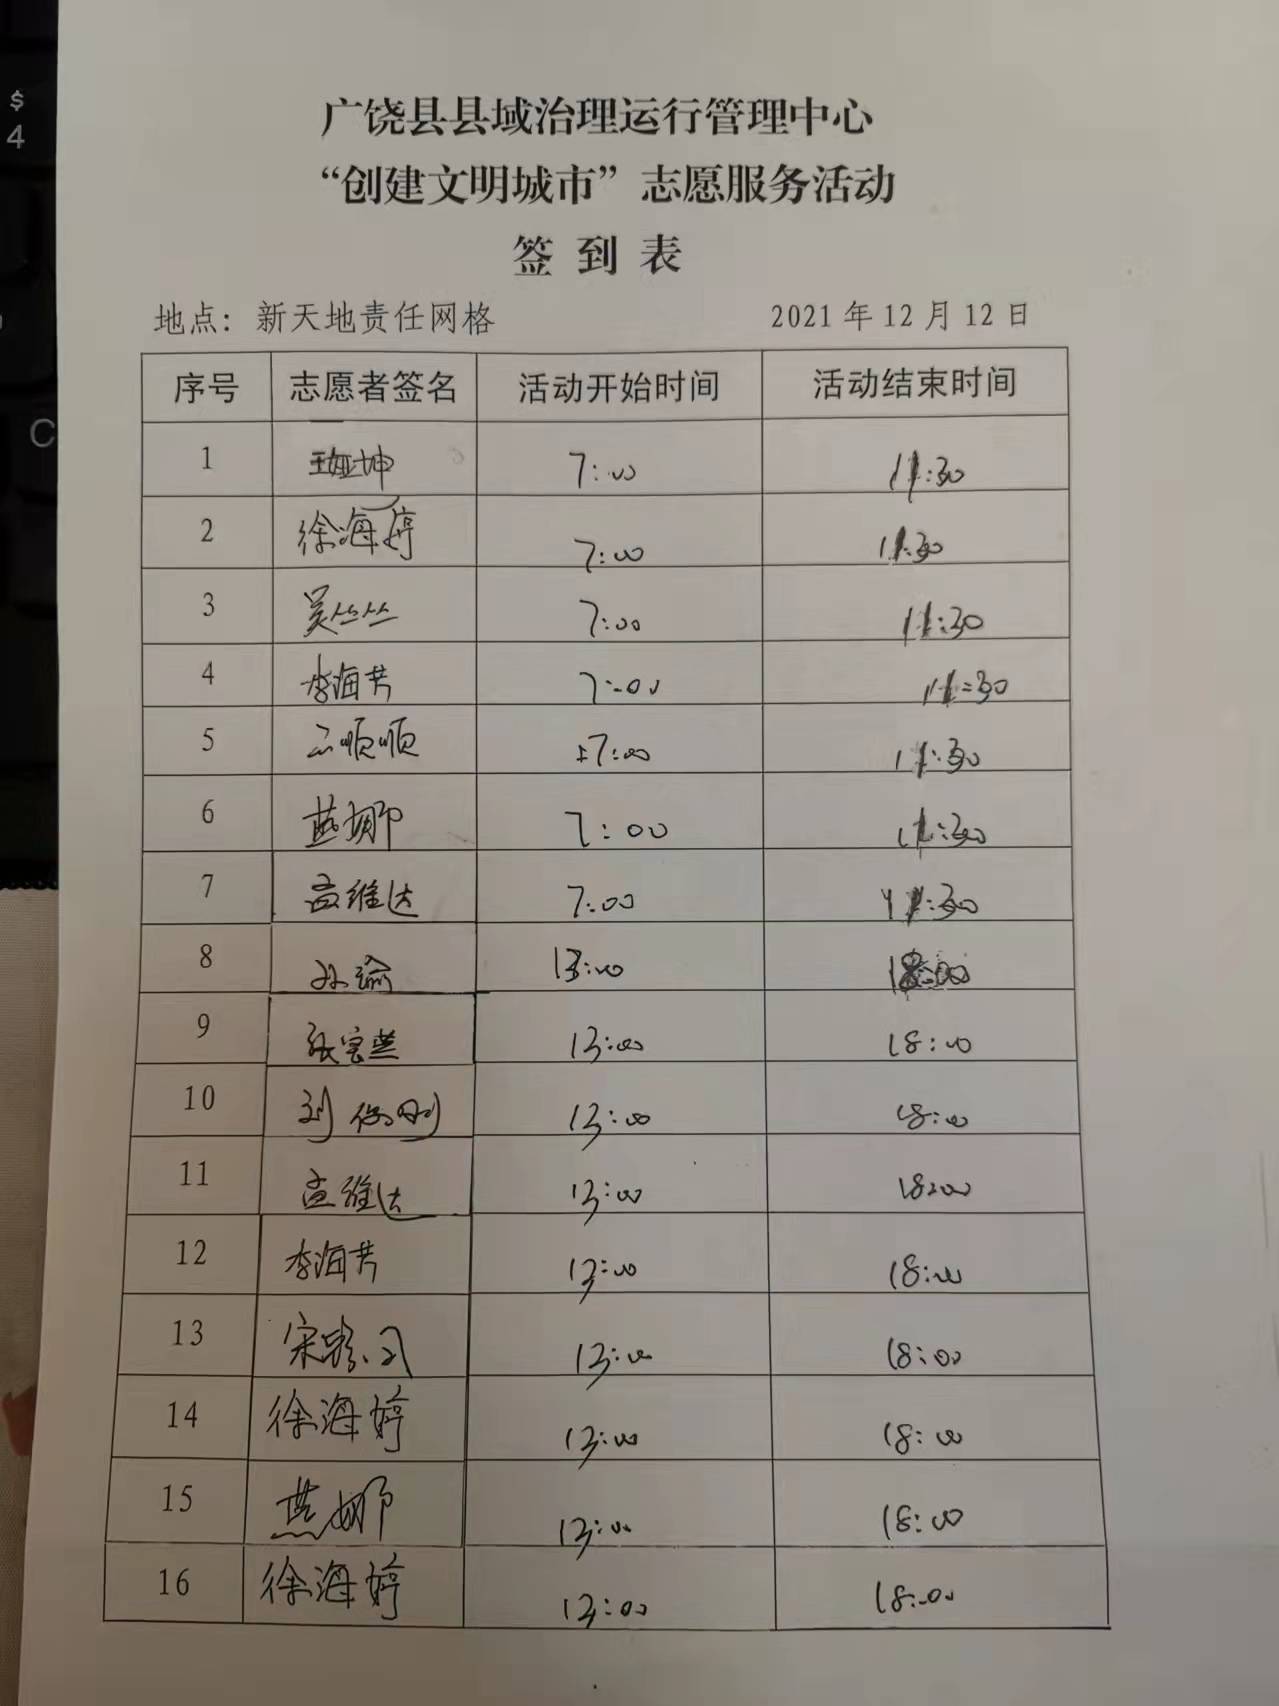 $
4
C
广饶县县域治理运行管理中心
“创建文明城市”志愿服务活动
签到表
地点：新天地责任网格 2021年12月12日
序号 志愿者签名 活动开始时间 活动结束时间
1 王娅坤 7:00 11:30
2 徐海婷 7:00 11:30
3 吴丛丛 7:00 11:30
4 李海芳 7:00 11:30
5 顺顺 7:00 11:30
6 燕娜 7:00 11:30
7 孟维达 7:00 11:30
8 孙瑜 13:00 18:00
9 张宝燕 13:00 18:00
10 刘 刚 13:00 18:00
11 孟维达 13:00 18:00
12 李海芳 13:00 18:00
13 宋 13:00 18:00
14 徐海婷 13:00 18:00
15 燕娜 13:00 18:00
16 徐海婷 13:00 18:00